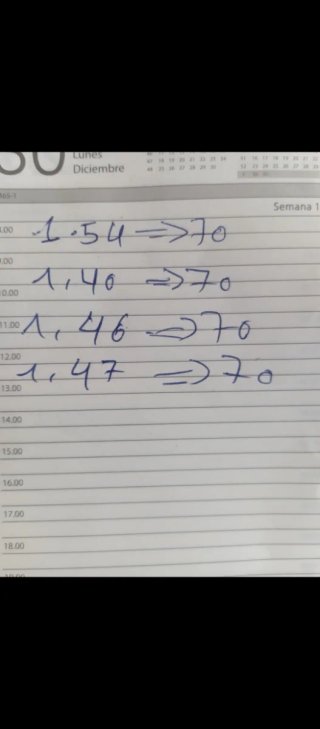 30 Lunes
Diciembre
365-1
Semana 1
8.00 1.54 => 70
9.00
10.00 1,40 => 70
11.00 1,46 => 70
12.00
13.00 1,47 => 70
14.00
15.00
16.00
17.00
18.00